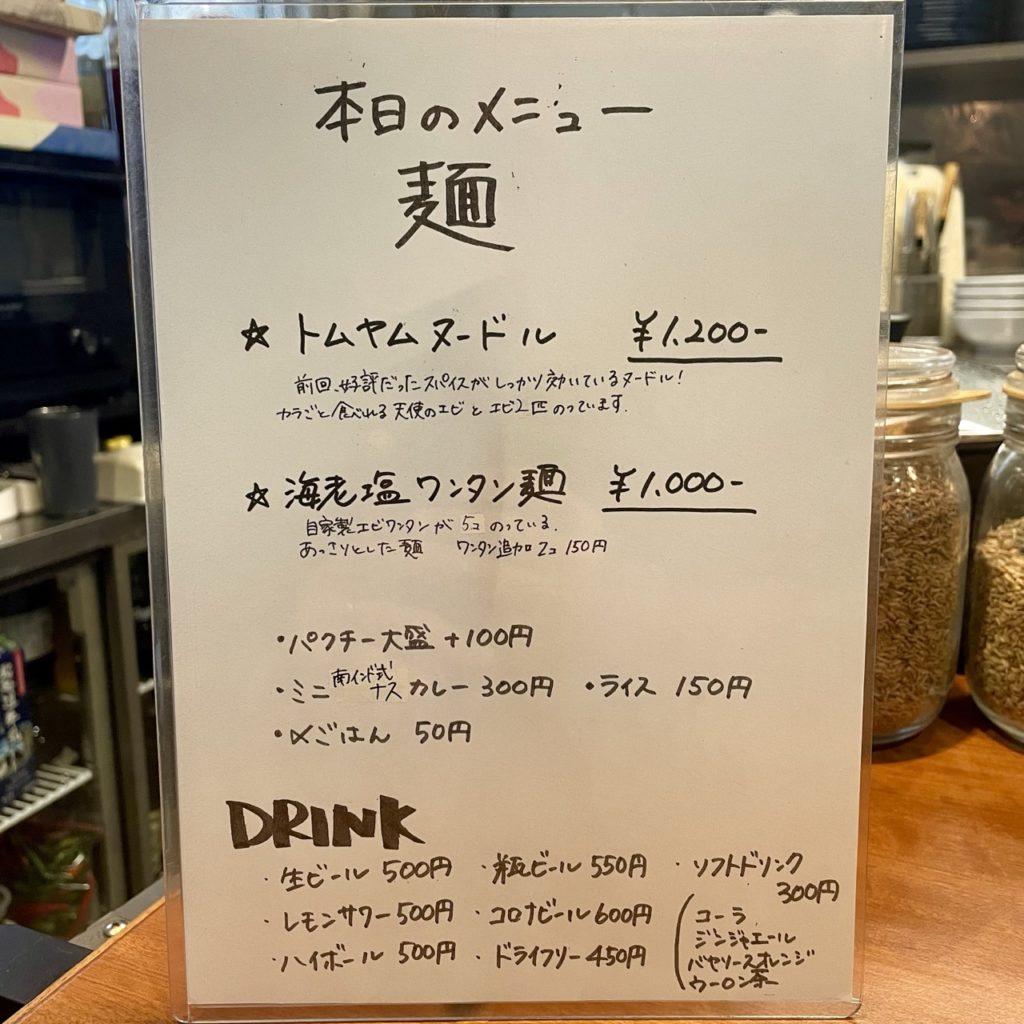 本日のメニュー
麺
☆ トムヤムヌードル ¥1,200-
前回、好評だったスパイスがしっかり効いているヌードル!
カラごと食べれる天使のエビとエビ2匹のっています.
☆ 海老塩ワンタン麺 ¥1.000-
自家製エビワンタンが5コのっている.
あっさりとした麺 ワンタン追加2コ150円
・パクチー大盛 +100円
・ミニ南インド式ナスカレー 300円 ・ライス 150円
・〆ごはん 50円
DRINK
・生ビール 500円 ・瓶ビール 550円 ・ソフトドリンク
300円
・レモンサワー 500円 ・コロナビール 600円 コーラ
ジンジャエール
・ハイボール 500円 ・ドライフリー 450円 バヤリースオレンジ
ウーロン茶